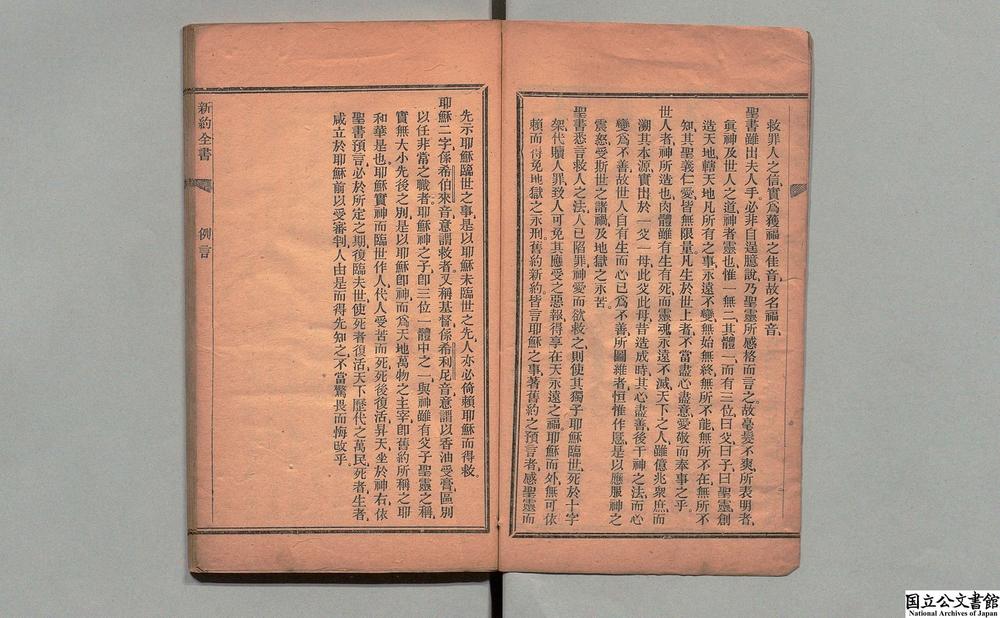 救罪人之信實爲獲福之佳音故名福音、
聖書雖出夫人手、必非自逞臆說乃聖靈所感格而言之。故毫髮不爽、所表明者、
眞神及世人之道、神者靈也惟一無二、其體一、而有三位、曰父曰子曰聖靈創
造天地、轄天地凡所有之事、永遠不變無始無終無所不能無所不在無所不
知、其聖義仁愛皆無限量、凡生於世上者、不當盡心盡意愛敬而奉事之乎。
世人者、神所造也、肉體雖有生有死而靈魂永遠不滅、天下之人、雖億兆衆庶、而
溯其本源、實出於一父一母、此父此母、昔造成時、其心盡善、後干神之法、而心
變爲不善、故世人自有生而心已爲不善、所圖維者、恒惟作慝、是以應服神之
震怒、受斯世之諸禍、及地獄之永苦。
聖書悉言救人之法、人已陷罪、神愛而欲救之、則使其獨子耶穌臨世、死於十字
架、代贖人罪、致人可免其應受之惡報、得享在天永遠之福、耶穌而外、無可依
賴而得免地獄之永刑、舊約新約、皆言耶穌之事、著舊約之預言者、感聖靈而
先示耶穌臨世之事、是以耶穌未臨世之先、人亦必倚賴耶穌而得救。
耶穌二字、係希伯來音、意謂救者、又稱基督、係希利尼音、意謂以香油受膏、區別
以任非常之職者、耶穌神之子、卽三位一體中之一、與神雖有父子聖靈之稱、
實無大小先後之別、是以耶穌卽神、而爲天地萬物之主宰、卽舊約所稱之耶
和華是也、耶穌實神而臨世作人、代人受苦而死、死後復活、昇天、坐於神右、依
聖書預言、必於所定之期、復臨夫世、使死者復活、天下歷代之萬民、死者生者、
咸立於耶穌前以受審判、人由是而得先知之、不當驚畏而悔改乎。
新約全書
例言
国立公文書館
National Archives of Japan